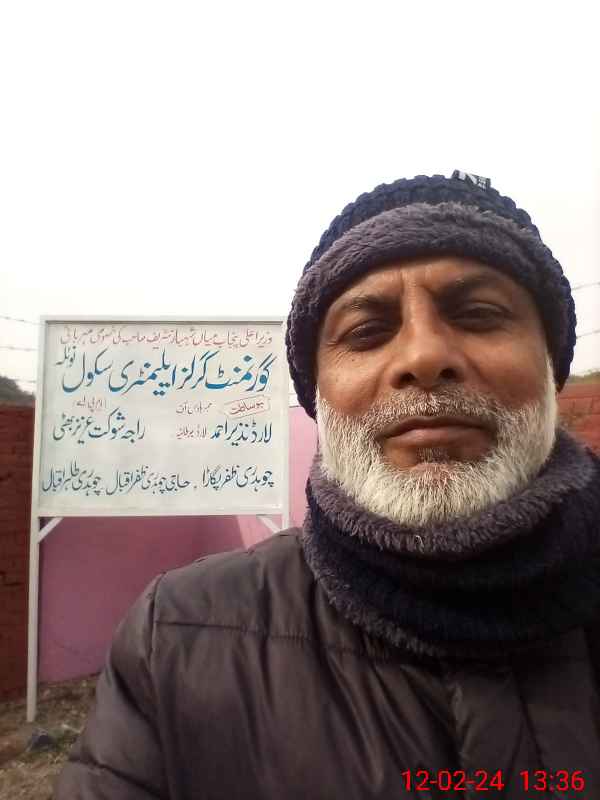 وزیر اعلیٰ پنجاب میاں شہباز شریف صاحب کی خصوصی مہربانی
گورنمنٹ گرلز ایلیمنٹری سکول نوٹلہ
بوساطت
ممبر ہاؤس آف
ایم پی اے
لارڈ نذیر احمد لارڈ برطانیہ راجہ شوکت عزیز بھٹی
چوہدری ظفر پگاڑا . حاجی چوہدری ظفر اقبال چوہدری طاہر اقبال
12-02-24 13:36